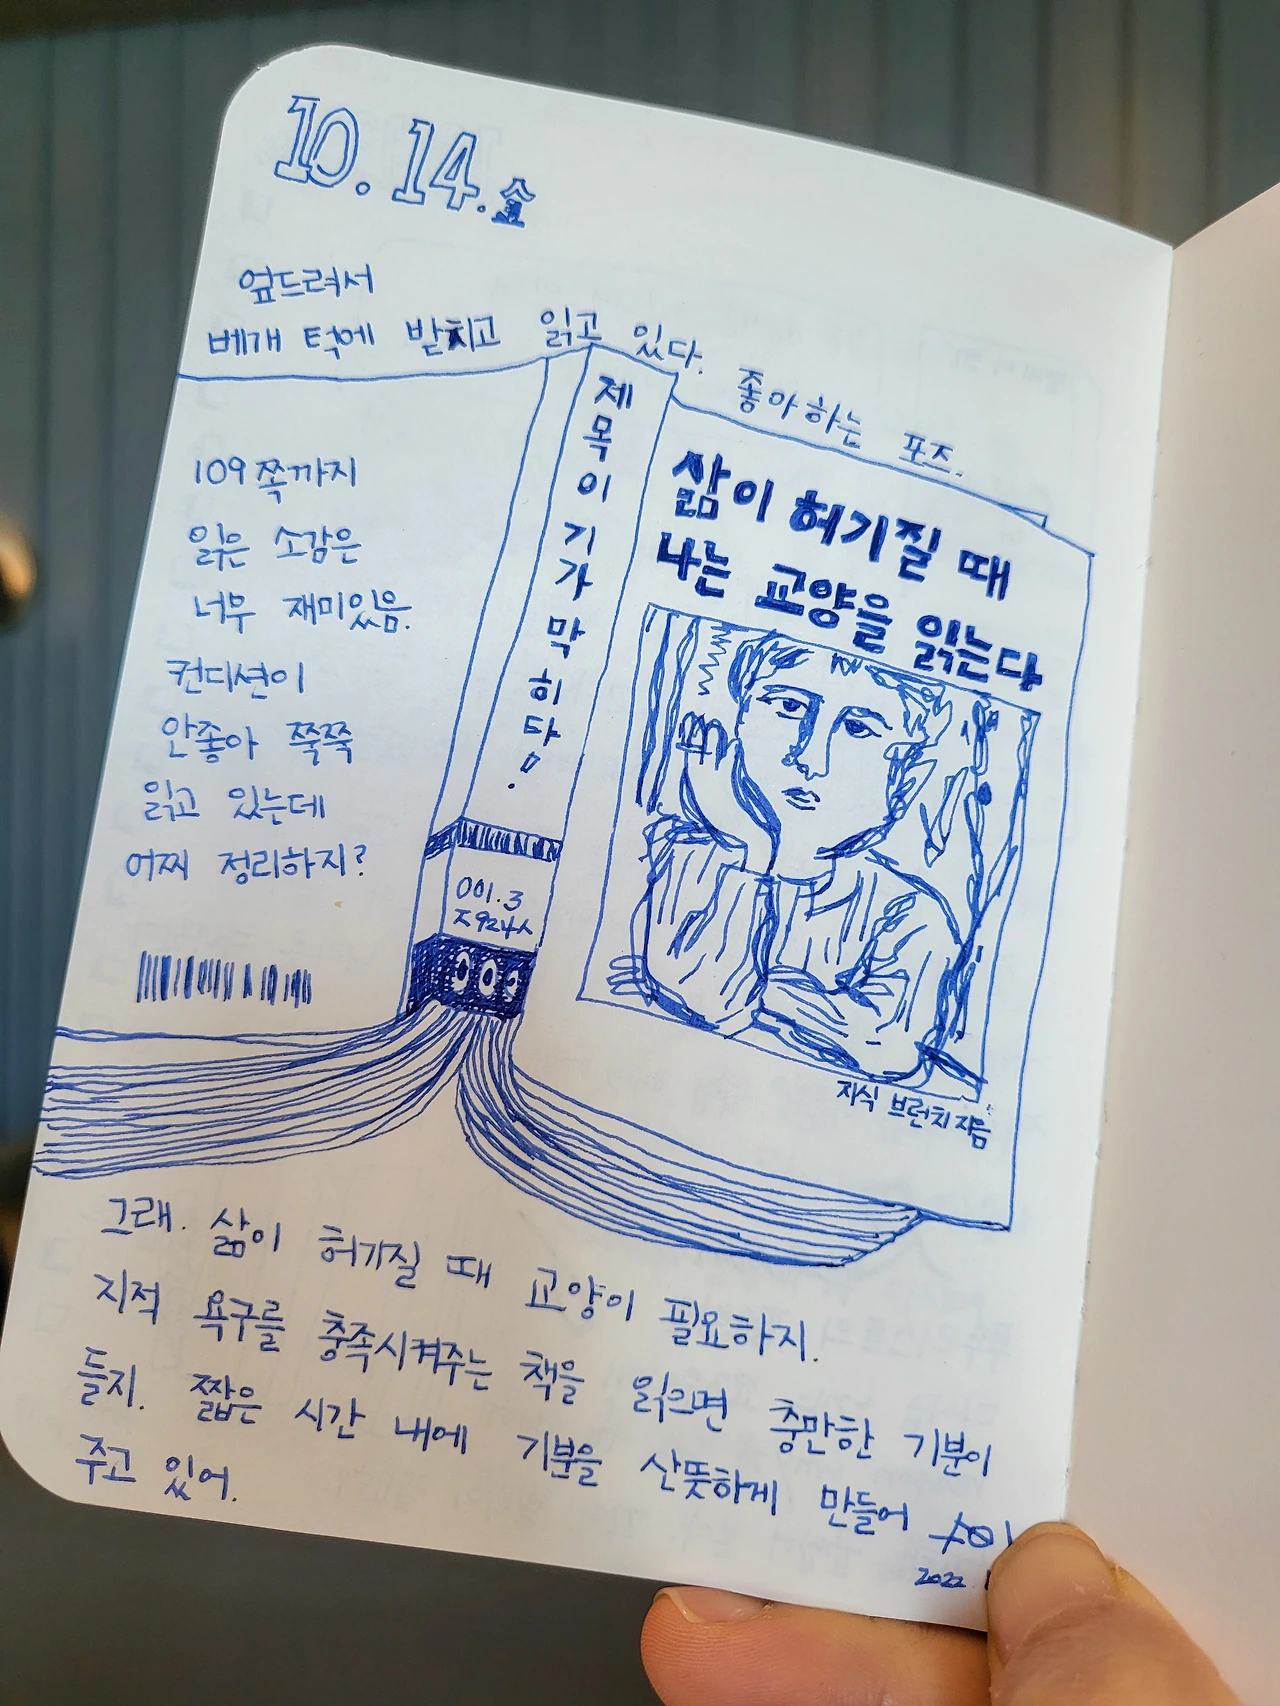 10. 14. 金
옆드려서
베개 턱에 받치고 읽고 있다. 좋아하는 포즈.
109쪽까지
읽은 소감은
너무 재미있음.
컨디션이
안좋아 쭉쭉
읽고 있는데
어찌 정리하지?
제목이 기가 막히다!
001.3
ㅈ924ㅅ
000
삶이 허기질 때
나는 교양을 읽는다
지식 브런치 지음
그래. 삶이 허기질 때 교양이 필요하지.
지적 욕구를 충족시켜주는 책을 읽으면 충만한 기분이
들지. 짧은 시간 내에 기분을 산뜻하게 만들어
주고 있어.
2022